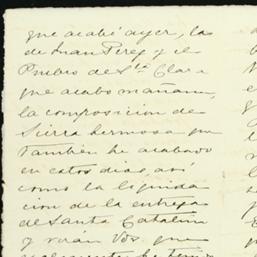 que acabé ayer, las
de Juan Perez y el
Pueblo de Sta. Clara
que acabo mañana,
la composicion de
Sierra hermosa que
tambien he acabado
en estos dias, asi
como la liquida
cion de la entrega
de Santa Catalina
y verán Vds. que